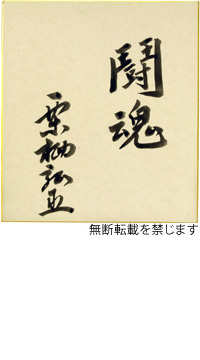 闘魂
栗柳弘亘
無断転載を禁じます